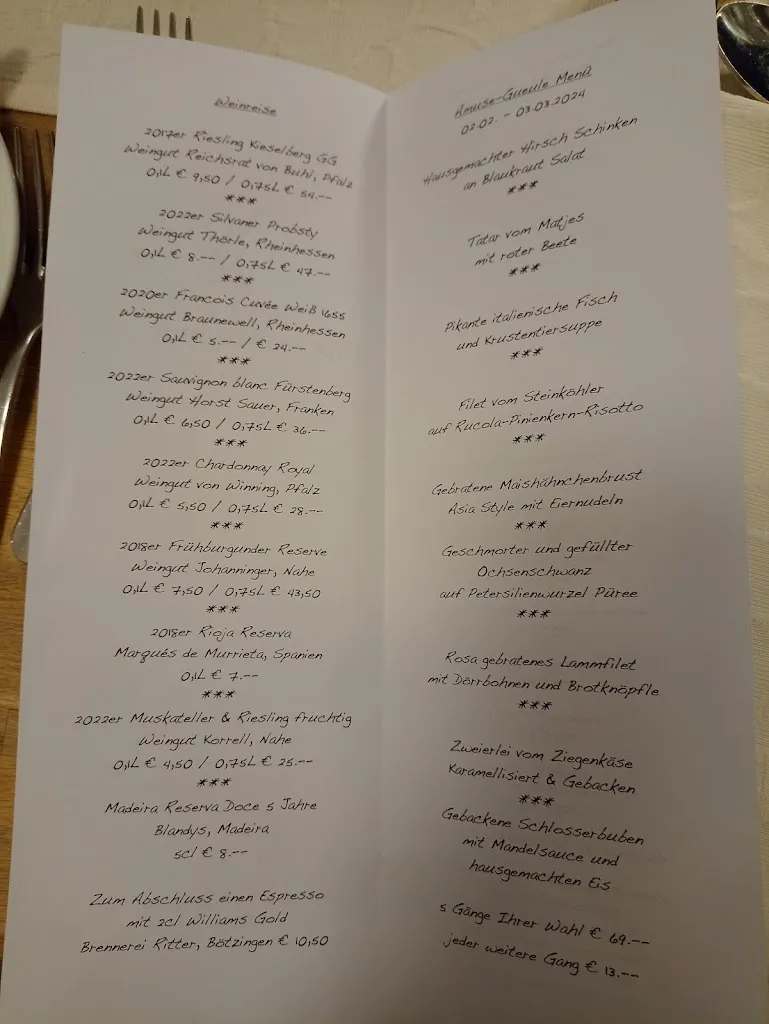 Weinreise
2017er Riesling Kieselberg GG
Weingut Reichsrat von Buhl, Pfalz
0,1L € 9,50 / 0,75L € 54.--
***
2022er Silvaner Probsty
Weingut Thörle, Rheinhessen
0,1L € 8.-- / 0,75L € 47.--
***
2020er Francois Cuvée Weiß 1655
Weingut Braunewell, Rheinhessen
0,1L € 5.-- / € 24.--
***
2022er Sauvignon blanc Fürstenberg
Weingut Horst Sauer, Franken
0,1L € 6,50 / 0,75L € 36.--
***
2022er Chardonnay Royal
Weingut von Winning, Pfalz
0,1L € 5,50 / 0,75L € 28.--
***
2018er Frühburgunder Reserve
Weingut Johanninger, Nahe
0,1L € 7,50 / 0,75L € 43,50
***
2018er Rioja Reserva
Marqués de Murrieta, Spanien
0,1L € 7.--
***
2022er Muskateller & Riesling fruchtig
Weingut Korrell, Nahe
0,1L € 4,50 / 0,75L € 25.--
***
Madeira Reserva Doce 5 Jahre
Blandys, Madeira
5cl € 8.--
Zum Abschluss einen Espresso
mit 2cl Williams Gold
Brennerei Ritter, Bötzingen € 10,50
Amuse-Gueule Menü
02.02. - 03.03.2024
Hausgemachter Hirsch Schinken
an Blaukraut Salat
***
Tatar vom Matjes
mit roter Beete
***
Pikante italienische Fisch
und Krustentiersuppe
***
Filet vom Steinköhler
auf Rucola-Pinienkern-Risotto
***
Gebratene Maishähnchenbrust
Asia Style mit Eiernudeln
***
Geschmorter und gefüllter
Ochsenschwanz
auf Petersilienwurzel Püree
***
Rosa gebratenes Lammfilet
mit Dörrbohnen und Brotknöpfle
***
Zweierlei vom Ziegenkäse
Karamellisiert & Gebacken
***
Gebackene Schlosserbuben
mit Mandelsauce und
hausgemachten Eis
5 Gänge Ihrer Wahl € 69.--
jeder weitere Gang € 13.--